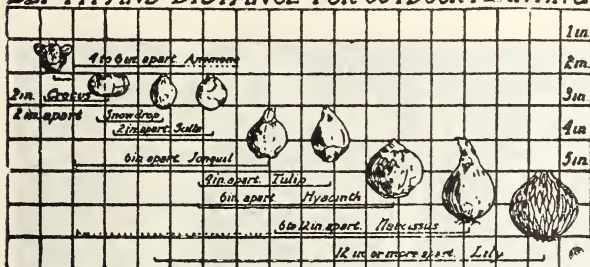 DEPTH AND DISTANCE FOR OUTDOOR PLANTING
1 in.
4 to 6 in. apart Anemone
2 in.
2 in. Crocus
3 in.
2 in. apart
Snowdrop
2 in. apart Scilla
4 in.
6 in. apart Jonquil
5 in.
4 in. apart Tulip
6 in. apart Hyacinth
6 to 12 in. apart. Narcissus
12 in. or more apart. Lily